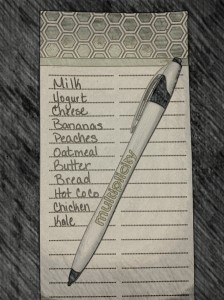 Milk
Yogurt
Cheese
Bananas
Peaches
Oatmeal
Butter
Bread
Hot CoCo
Chicken
Kale
multiplicity